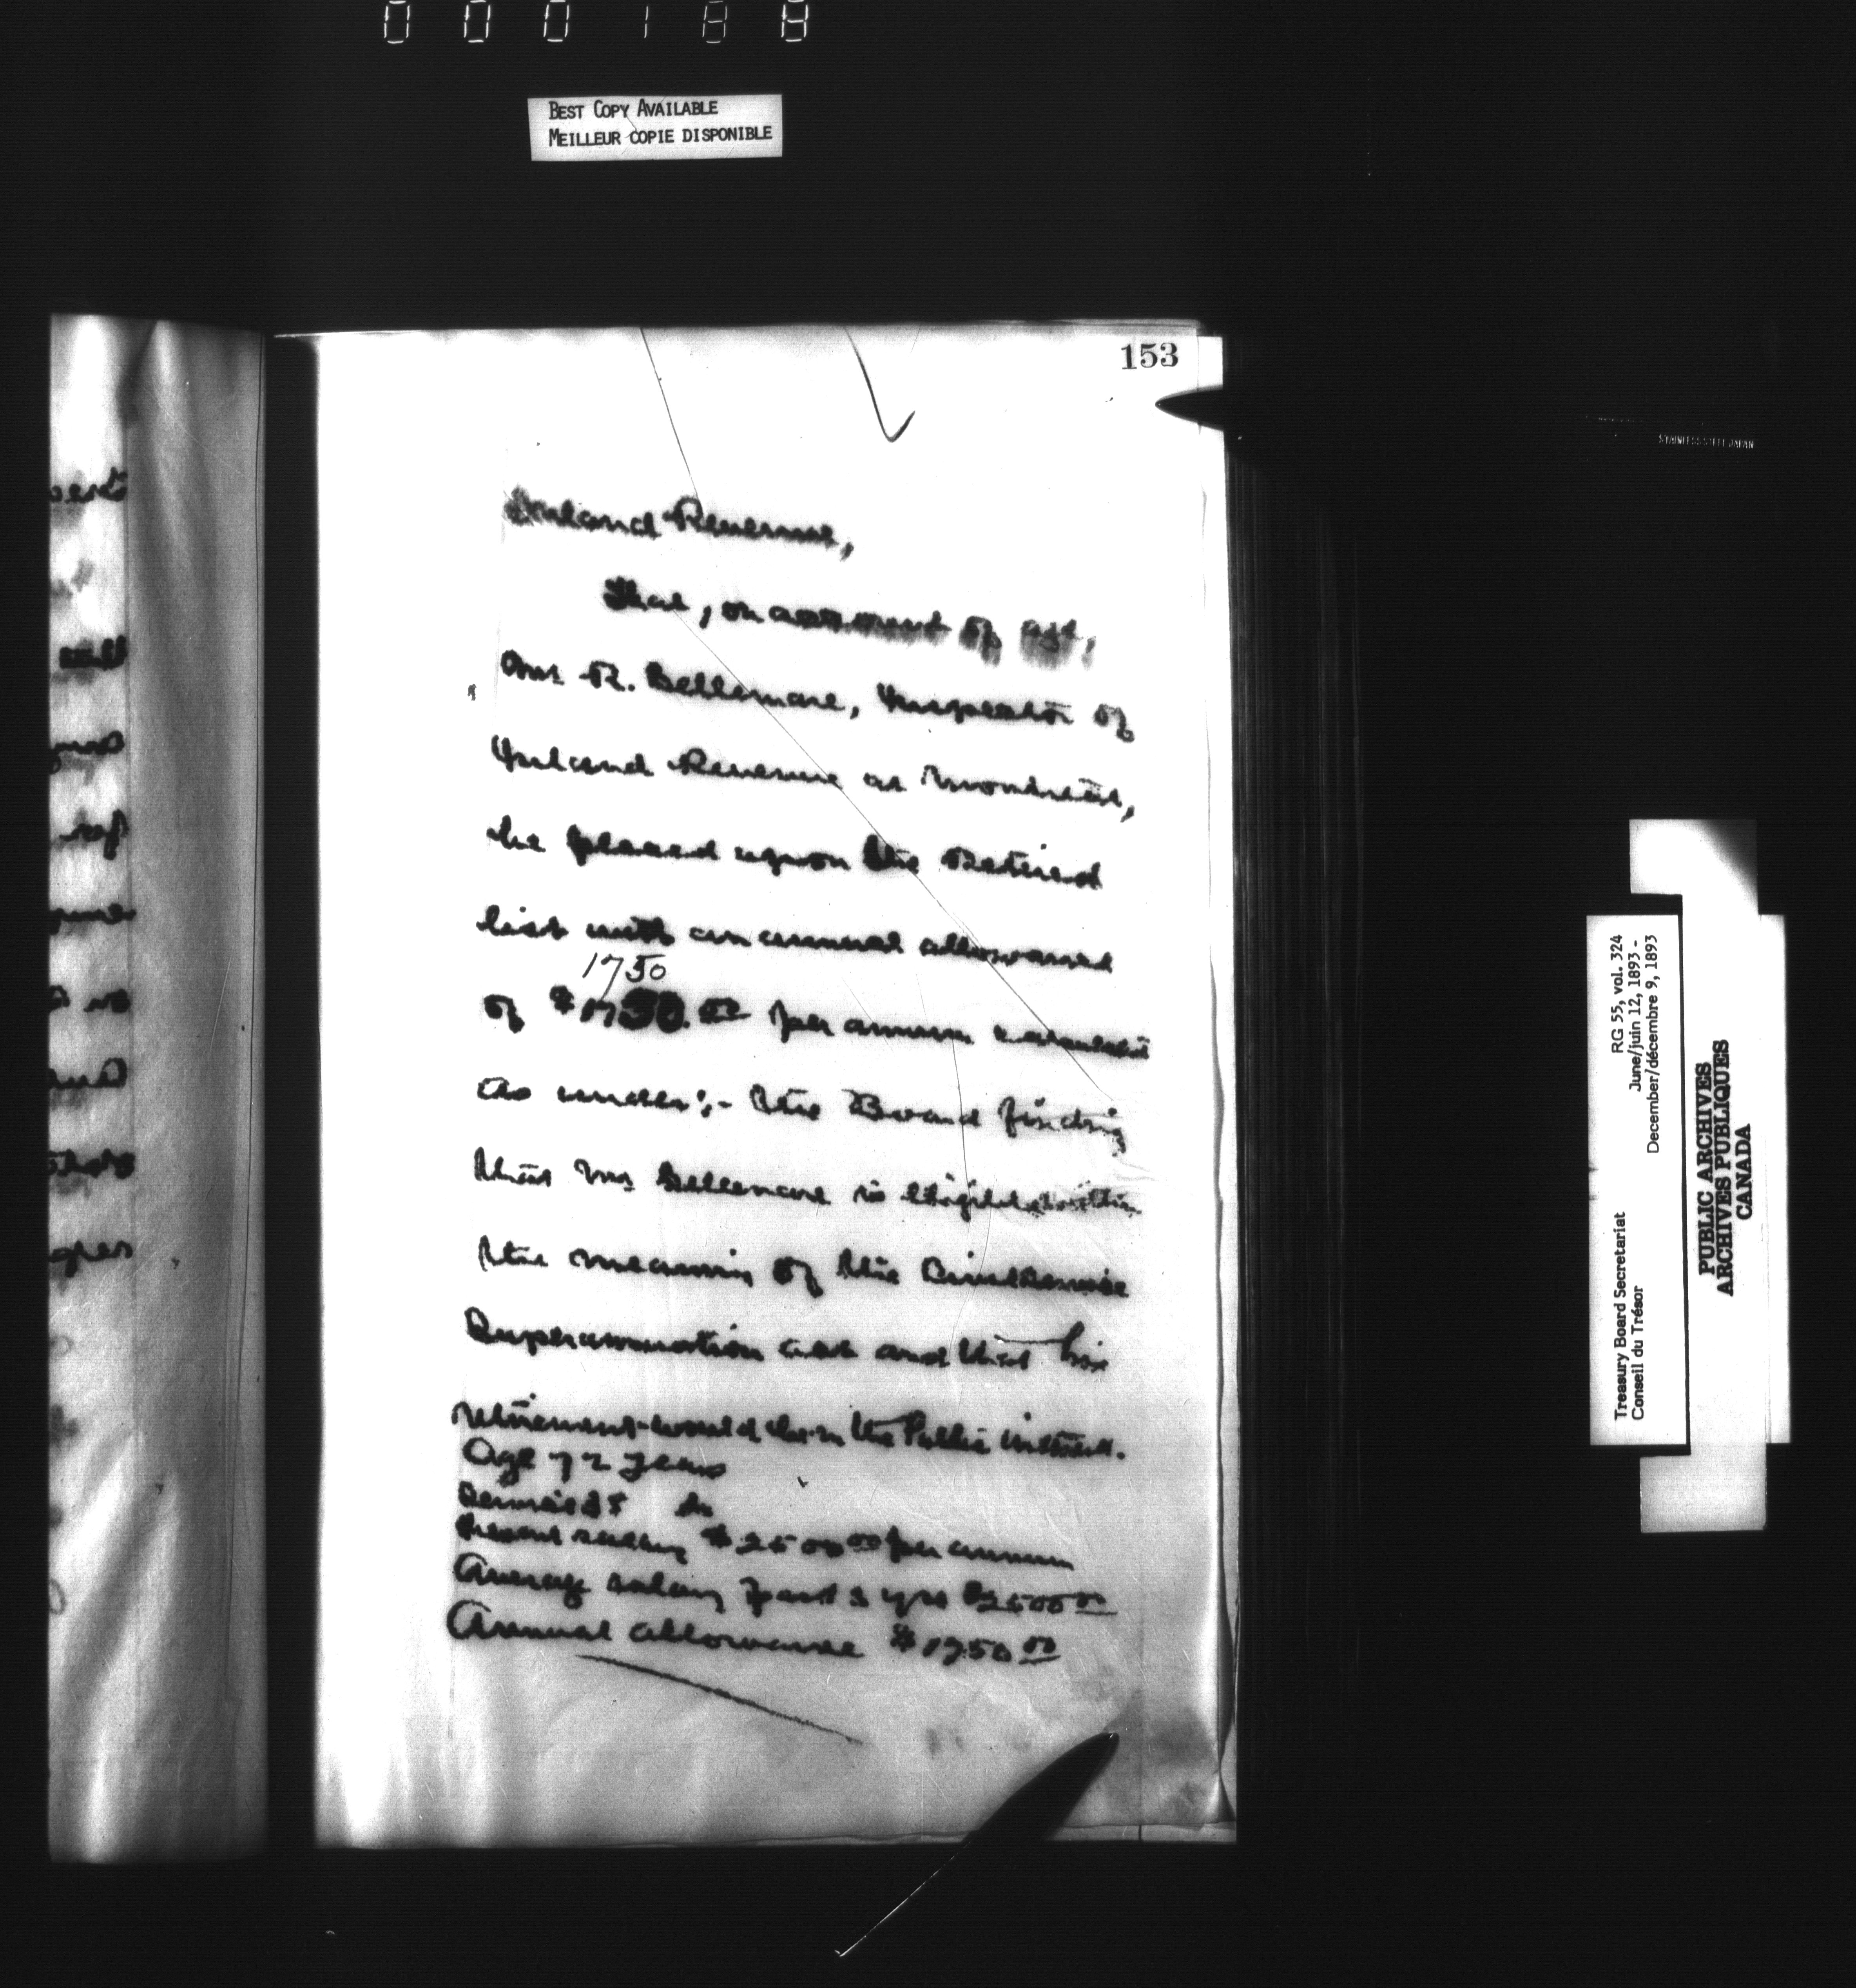 000188
BEST COPY AVAILABLE
MEILLEUR COPIE DISPONIBLE
153
Inland Revenue,
That, on account of age,
Mr R. Bellemare, Inspector of
Inland Revenue at Montreal,
be placed upon the Retired
list with an annual allowance
1750
of $1750.00 per annum
as under:- the Board finding
that Mr Bellemare is eligible within
the meaning of the Civil Service
Superannuation Act and that his
retirement would be in the Public interest.
Age 72 years
Service 35 do
Present salary $2500.00 per annum
Average salary past 3 yrs $2500.00
Annual allowance $1750.00
STAINLESS STEEL JAPAN
Treasury Board Secretariat RG 55, vol. 324
Conseil du Trésor June/juin 12, 1893 -
December/décembre 9, 1893
PUBLIC ARCHIVES
ARCHIVES PUBLIQUES
CANADA